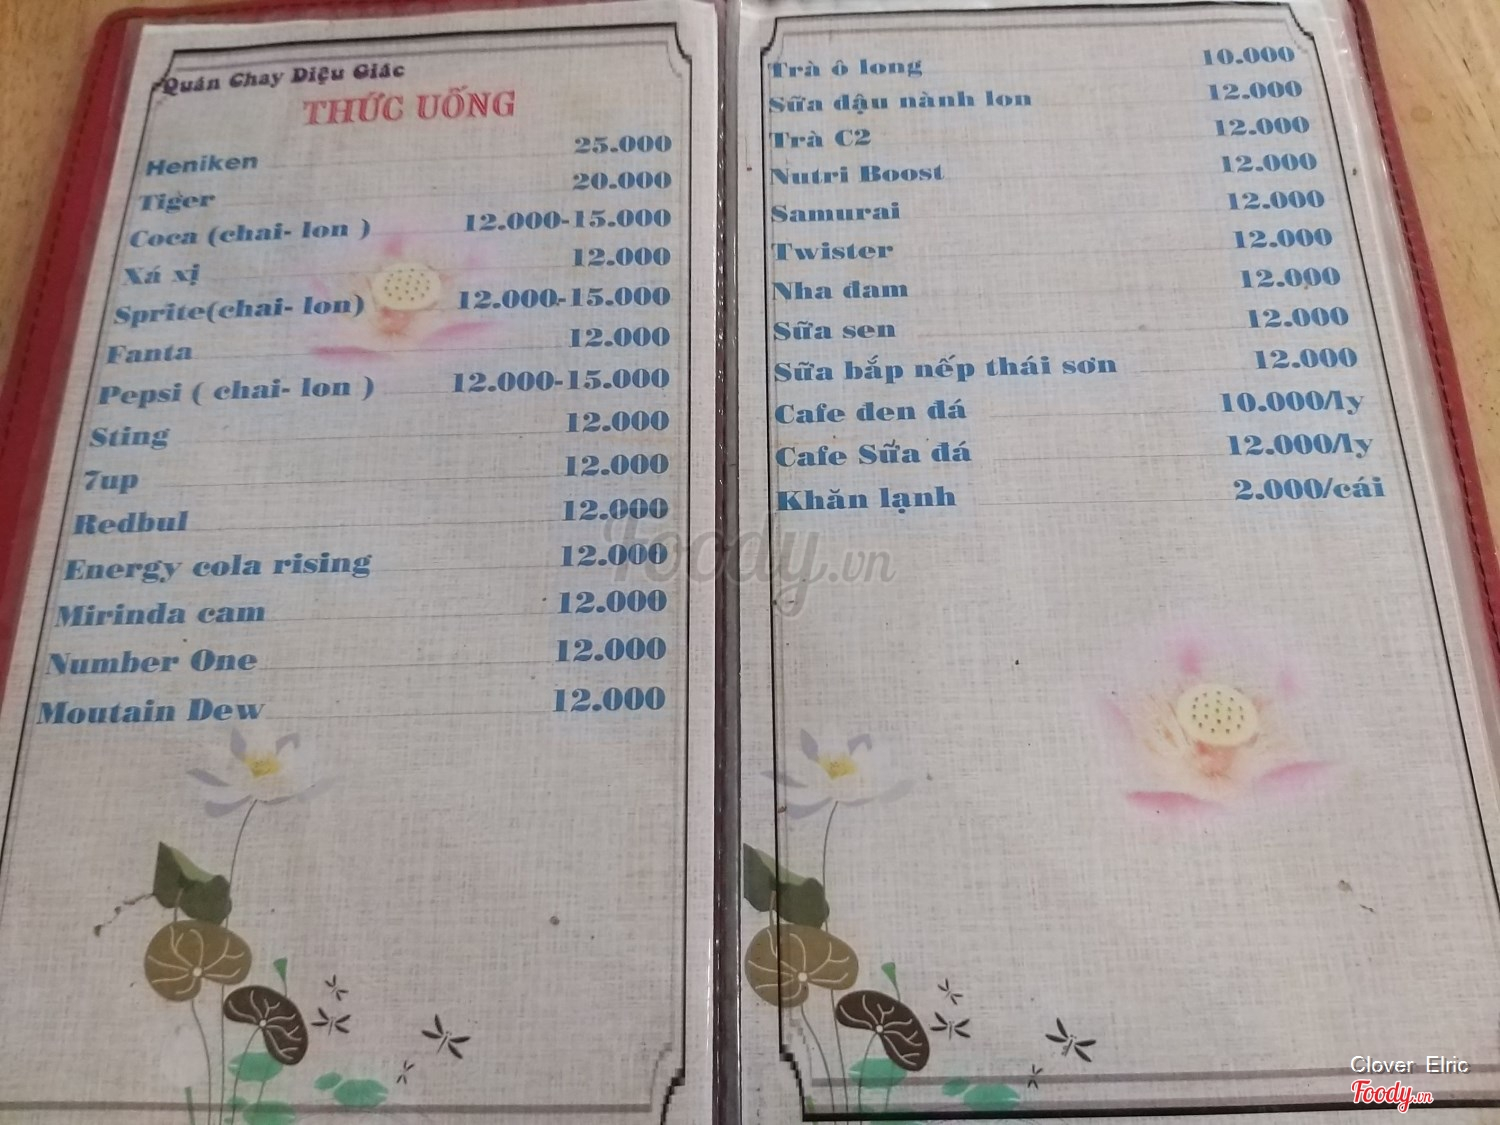 Quán Chay Diệu Giác
THỨC UỐNG
Heniken 25.000
Tiger 20.000
Coca (chai- lon ) 12.000-15.000
Xá xị 12.000
Sprite(chai- lon) 12.000-15.000
Fanta 12.000
Pepsi ( chai- lon ) 12.000-15.000
Sting 12.000
7up 12.000
Redbul 12.000
Energy cola rising 12.000
Mirinda cam 12.000
Number One 12.000
Moutain Dew 12.000
Trà ô long 10.000
Sữa đậu nành lon 12.000
Trà C2 12.000
Nutri Boost 12.000
Samurai 12.000
Twister 12.000
Nha đam 12.000
Sữa sen 12.000
Sữa bắp nếp thái sơn 12.000
Cafe đen đá 10.000/ly
Cafe Sữa đá 12.000/ly
Khăn lạnh 2.000/cái
Foody.vn
Clover Elric
Foody.vn